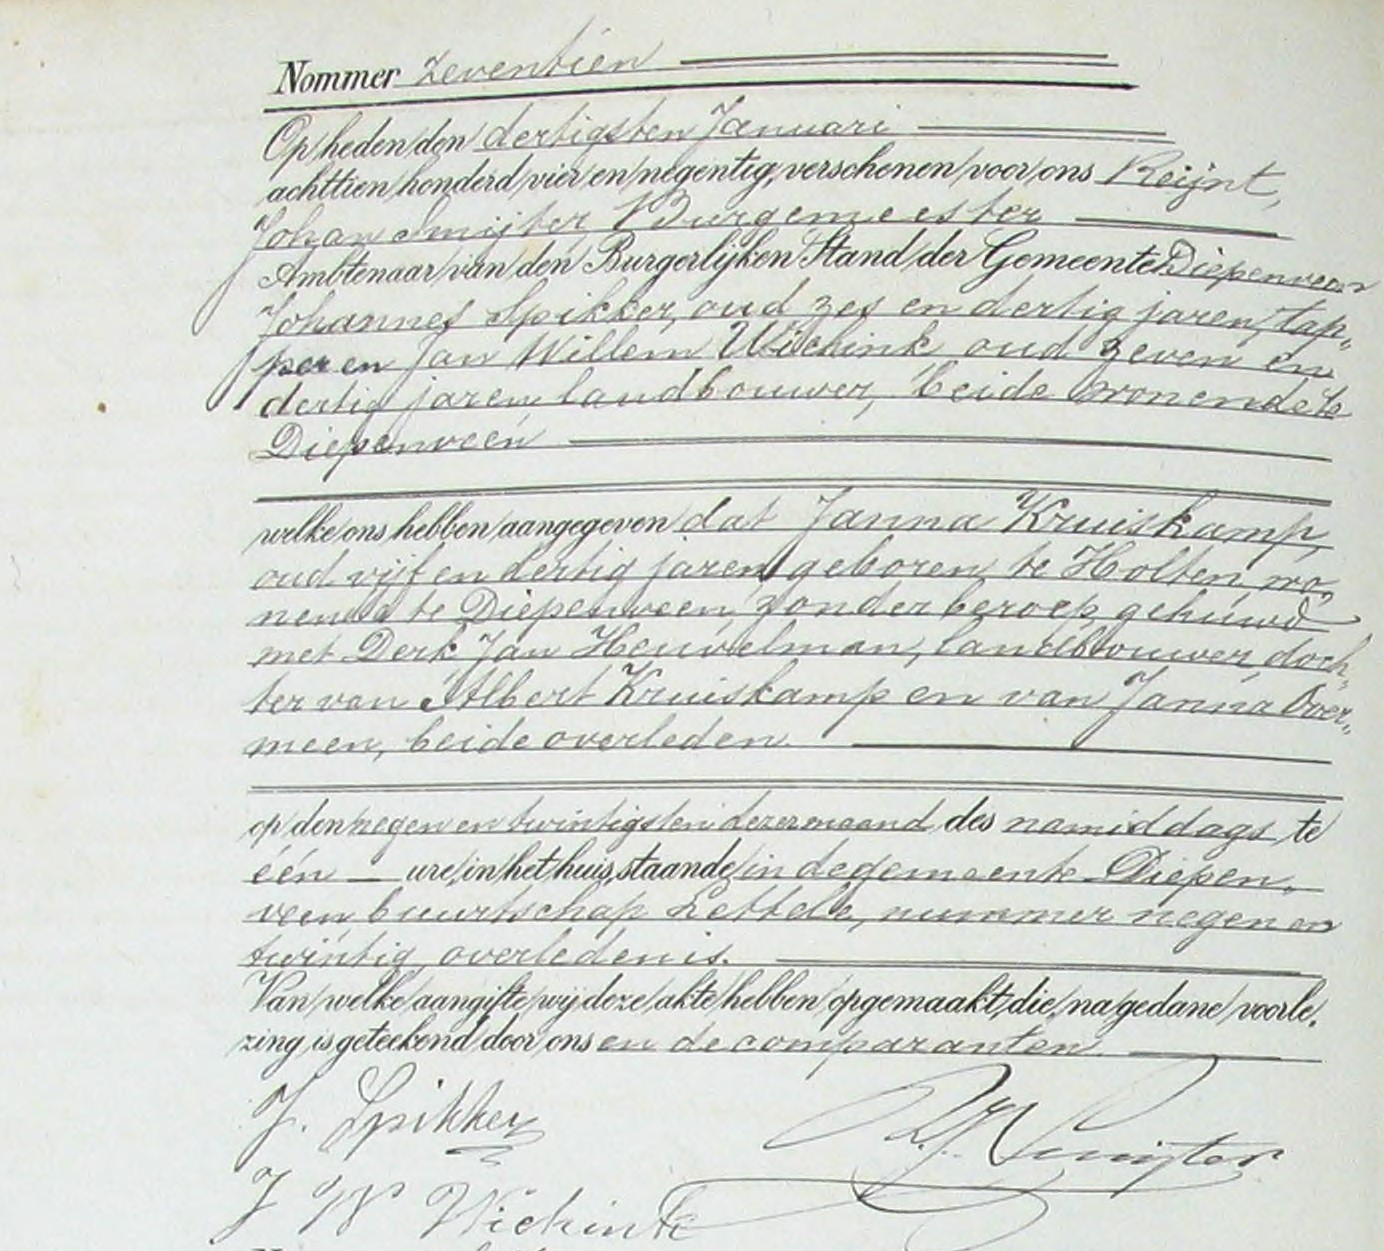 Nommer zeventien
Op heden den dertigsten Januari
achttien honderd vier en negentig, verschenen voor ons Reijnt,
Johan Smijter Burgemeester
Ambtenaar van den Burgerlijken Stand der Gemeente Diepenveen
Johannes Spikker, oud zes en dertig jaren, tap-
per en Jan Willem Wichink oud zeven en
dertig jaren landbouwer, beide wonende te
Diepenveen
welke ons hebben aangegeven dat Janna Kruiskamp,
oud vijf en dertig jaren geboren te Holten, wo-
nende te Diepenveen, zonder beroep gehuwd
met Derk Jan Heuvelman, landbouwer, doch-
ter van Albert Kruiskamp en van Janna Over-
meen, beide overleden.
op den negen en twintigsten dezer maand des namiddags te
één ure, in het huis, staande in de gemeente Diepen-
veen buurtschap Lettele, nummer negen en
twintig overleden is.
Van welke aangifte wij deze akte hebben opgemaakt, die, na gedane voorle-
zing is geteekend door ons en de comparanten.
J. Spikker
Smijter
J W Wichink